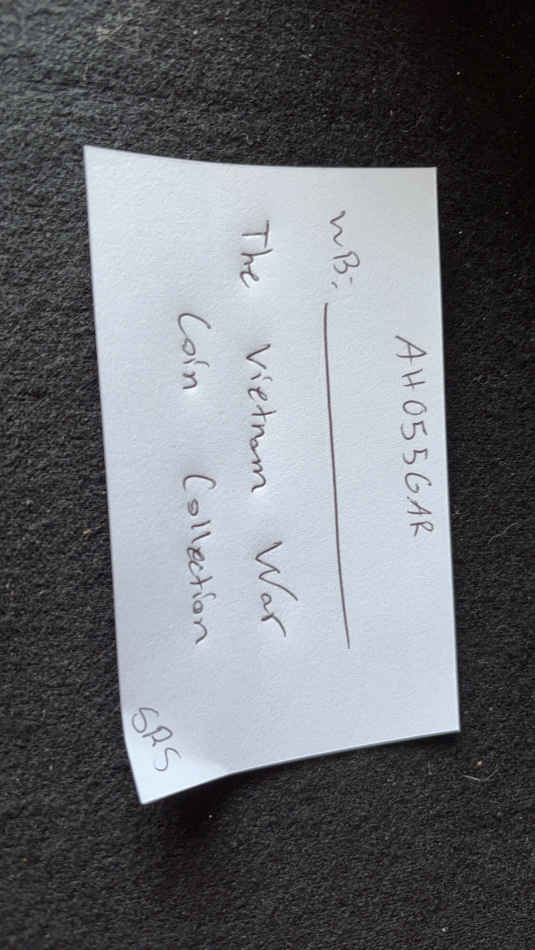 AH0556AR
WB: ________
The Vietnam War
Coin Collection
SRS